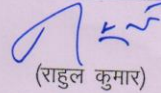 (राहुल कुमार)